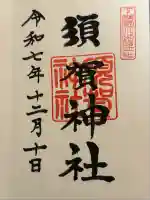 須賀神社
令和七年十二月十日